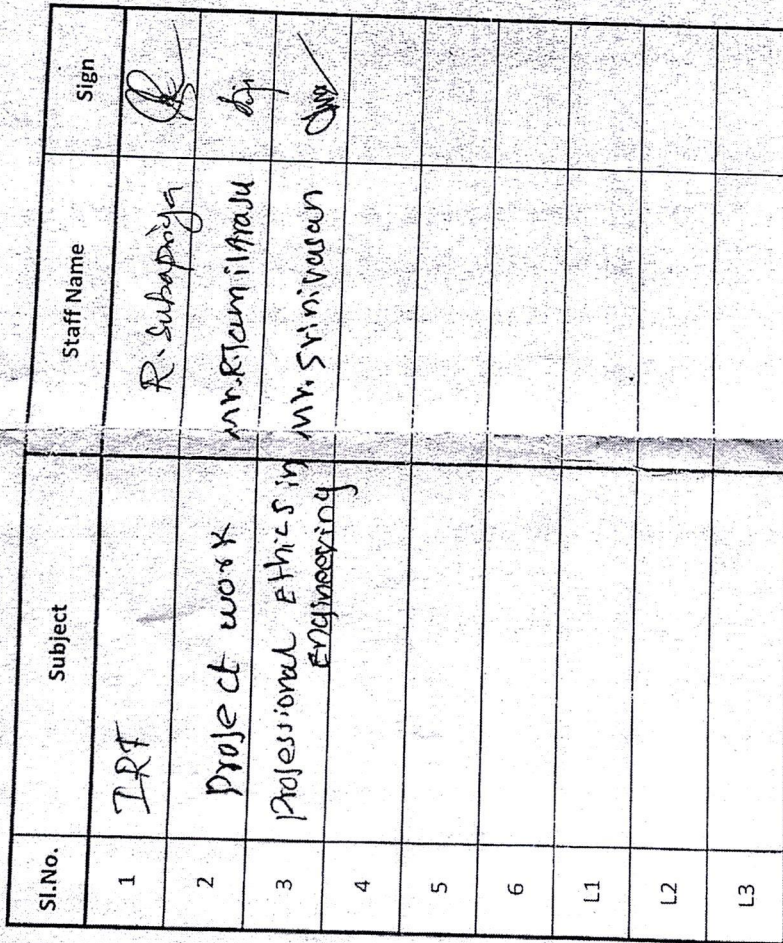 Sl.No. Subject Staff Name Sign
1 IRT R. Subapriya
2 Project work Mr.R.TamilArasu
3 Professional Ethics in Mr. Srinivasan
Engineering
4
5
6
L1
L2
L3